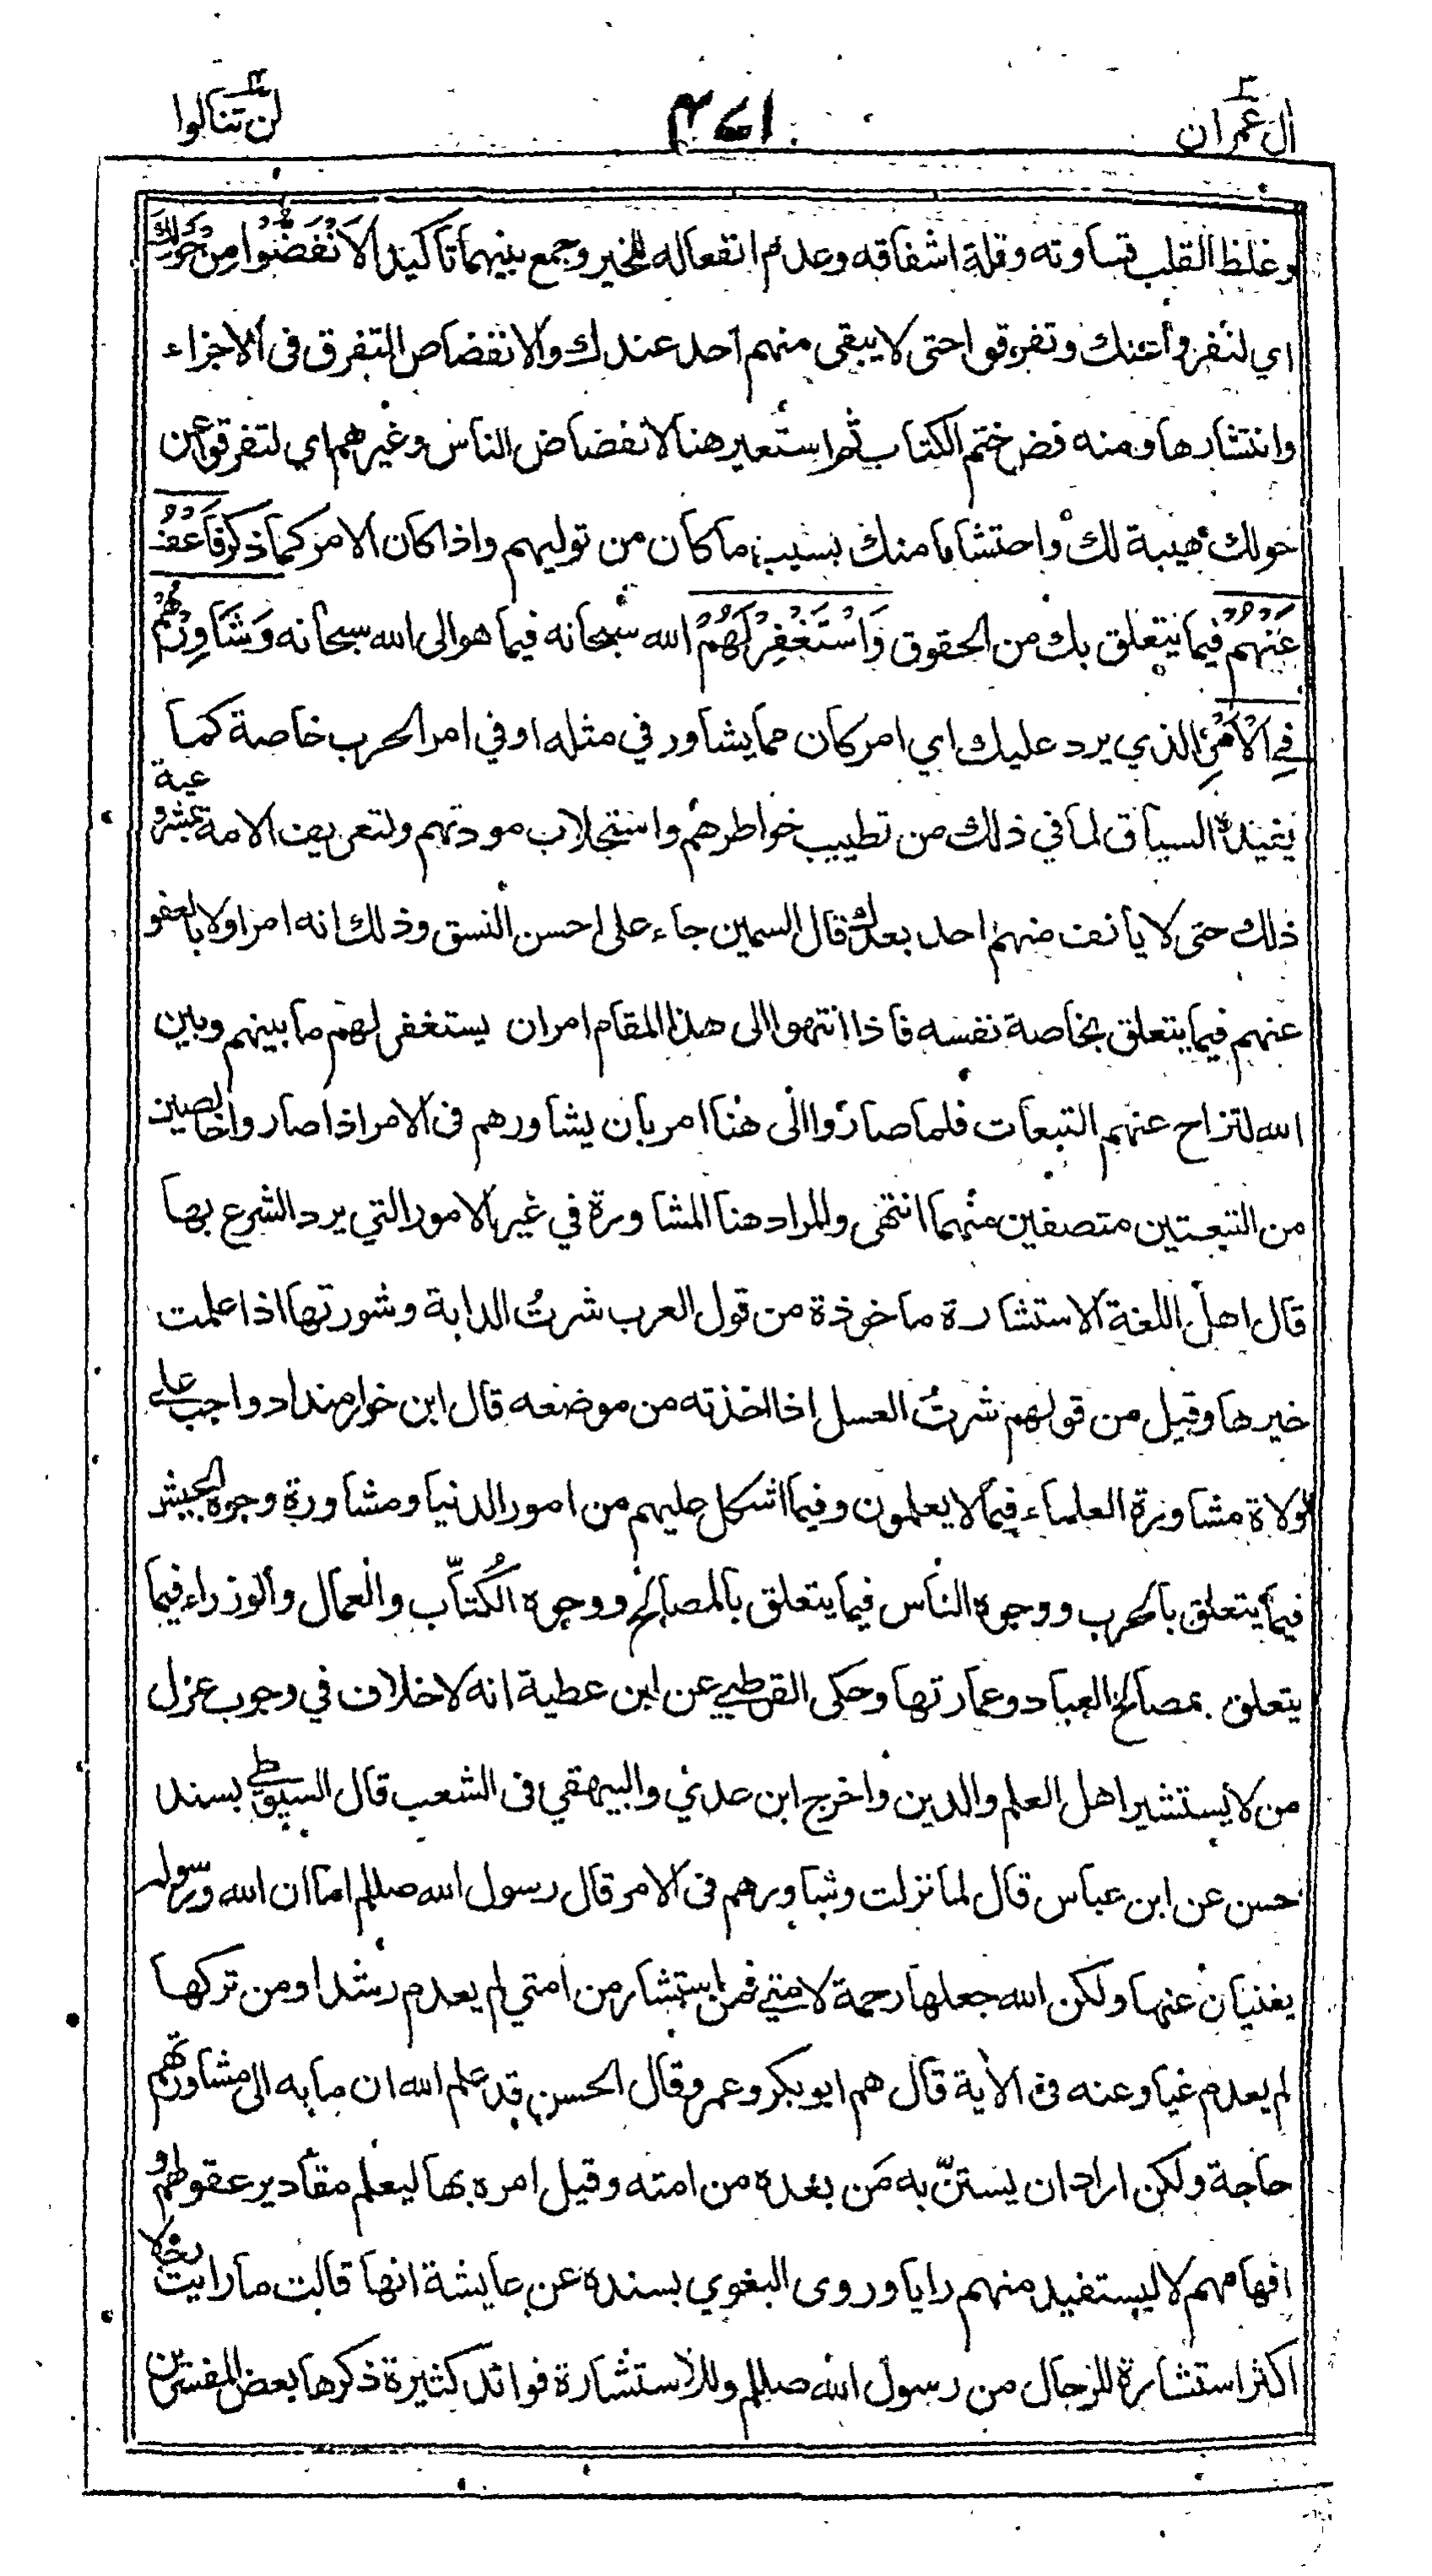 اٰل عمران ٣
٤٧١
لن تنالوا ٤
وغلظ القلب قساوته وقلة اشفاقه وعدم انفعاله للخير وجمع بينهما تاكيدا لَانْفَضُّوْا مِنْ حَوْلِكَ
اي لنفروا عنك وتفرقوا حتى لا يبقى منهم احد عندك والانفضاض التفرق فى الاجزاء
وانتشارها ومنه فض ختم الكتاب ثم استعير هنا لانفضاض الناس وغيرهم اي لتفرقوا عن
حولك هيبة لك واحتشاما منك بسبب ما كان من توليهم واذا كان الامر كما ذكر فَاعْفُ
عَنْهُمْ فيما يتعلق بك من الحقوق وَاسْتَغْفِرْ لَهُمْ الله سبحانه فيما هو الى الله سبحانه وَشَاوِرْهُمْ
فِي الْاَمْرِ الذي يرد عليك اي امر كان مما يشاور في مثله او في امر الحرب خاصة كما
يفيده السياق لما في ذلك من تطييب خواطرهم واستجلاب مودتهم ولتعريف الامة بمشروعية
ذلك حتى لا يأنف منهم احد بعدك قال السمين جاء على احسن النسق وذلك انه امر اولا بالعفو
عنهم فيما يتعلق بخاصة نفسه فاذا انتهوا الى هذا المقام امر ان يستغفر لهم ما بينهم وبين
الله لتنزاح عنهم التبعات فلما صاروا الى هنا امر بان يشاورهم فى الامر اذا صاروا خالصين
من التبعتين متصفين منهما انتهى والمراد هنا المشاورة في غير الامور التي يرد الشرع بها
قال اهل اللغة الاستشارة ماخوذة من قول العرب شرتُ الدابة وشورتها اذا علمت
خيرها وقيل من قولهم شرتُ العسل اذا اخذته من موضعه قال ابن خوازمنداد واجب على
الولاة مشاورة العلماء فيما لا يعلمون وفيما اشكل عليهم من امور الدنيا ومشاورة وجوه الجيش
فيما يتعلق بالحرب ووجوه الناس فيما يتعلق بالمصالح ووجوه الكُتّاب والعمال والوزراء فيما
يتعلق بمصالح العباد وعمارتها وحكى القرطبي عن ابن عطية انه لا خلاف في وجوب عزل
من لا يستشير اهل العلم والدين واخرج ابن عدي والبيهقي فى الشعب قال السيوطي بسند
حسن عن ابن عباس قال لما نزلت وشاورهم فى الامر قال رسول الله صللم اما ان الله ورسوله
يغنيان عنها ولكن الله جعلها رحمة لامتي فمن استشار من امتي لم يعدم رشدا ومن تركها
لم يعدم غيا وعنه فى الاية قال هم ابو بكر وعمر وقال الحسن قد علم الله ان ما به الى مشاورتهم
حاجة ولكن اراد ان يستنّ به مَن بعده من امته وقيل امره بها ليعلم مقادير عقولهم و
افهامهم لا ليستفيد منهم رايا وروى البغوي بسنده عن عايشة انها قالت ما رايت رجلا
اكثر استشارة للرجال من رسول الله صللم وللاستشارة فوائد كثيرة ذكرها بعض المفسرين